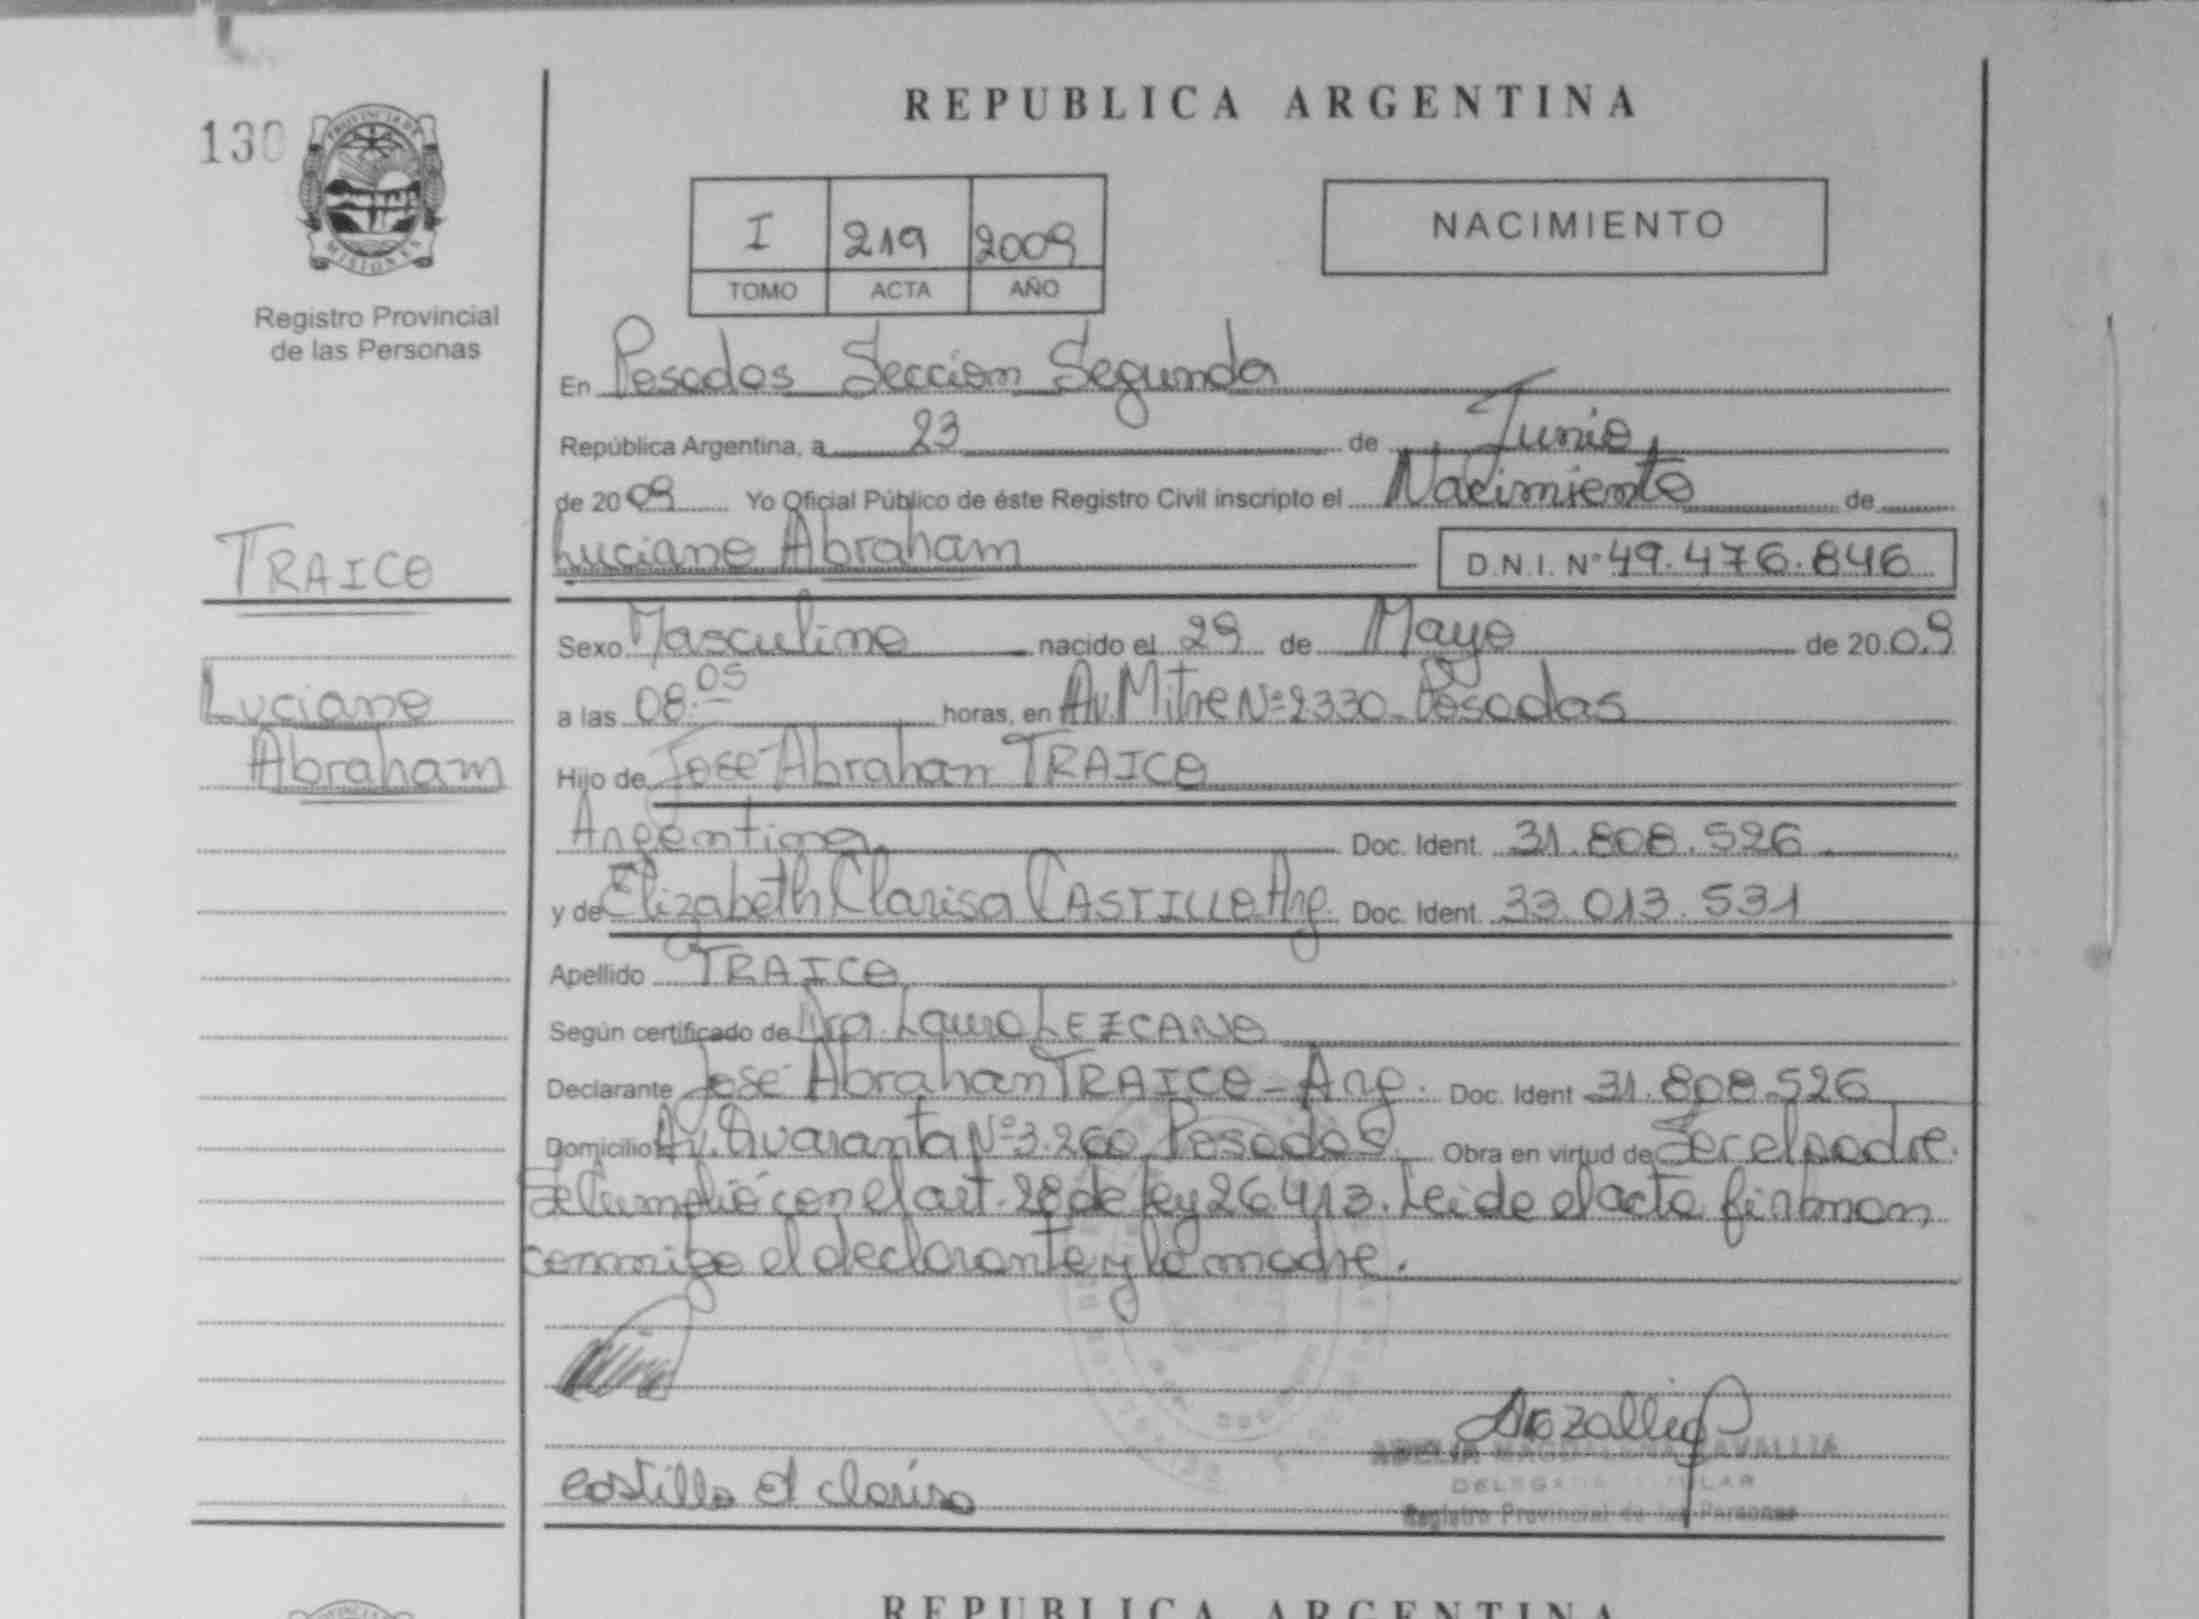 REPUBLICA ARGENTINA
130
PROVINCIA DE
MISIONES
Registro Provincial
de las Personas
I 219 2009
TOMO ACTA AÑO
NACIMIENTO
En Posadas Seccion Segunda
República Argentina, a 23 de Junio
de 2009 Yo Oficial Público de éste Registro Civil inscripto el Nacimiento de
Luciano Abraham D.N.I. Nº 49.476.846
TRAICO
Luciano
Abraham
Sexo Masculino nacido el 29 de Mayo de 20.09
a las 08.05 horas, en Av. Mitre Nº 2330 - Posadas
Hijo de José Abrahan TRAICO
Argentino Doc. Ident. 31.808.526
y de Elizabeth Clarisa CASTILLO Arg. Doc. Ident. 33.013.531
Apellido TRAICO
Según certificado de Dra. Laura LEZCANO
Declarante José Abraham TRAICO - Arg. Doc. Ident 31.808.526
Domicilio Av. Quaranta Nº 3.260 Posadas. Obra en virtud de Ser el padre.
Se Cumplió con el art. 28 de ley 26.413. Leida el acta firman
conmigo el declarante y la madre.
Castillo E Clarisa
DELEGADA TITULAR
Registro Provincial de las Personas
REPUBLICA ARGENTINA